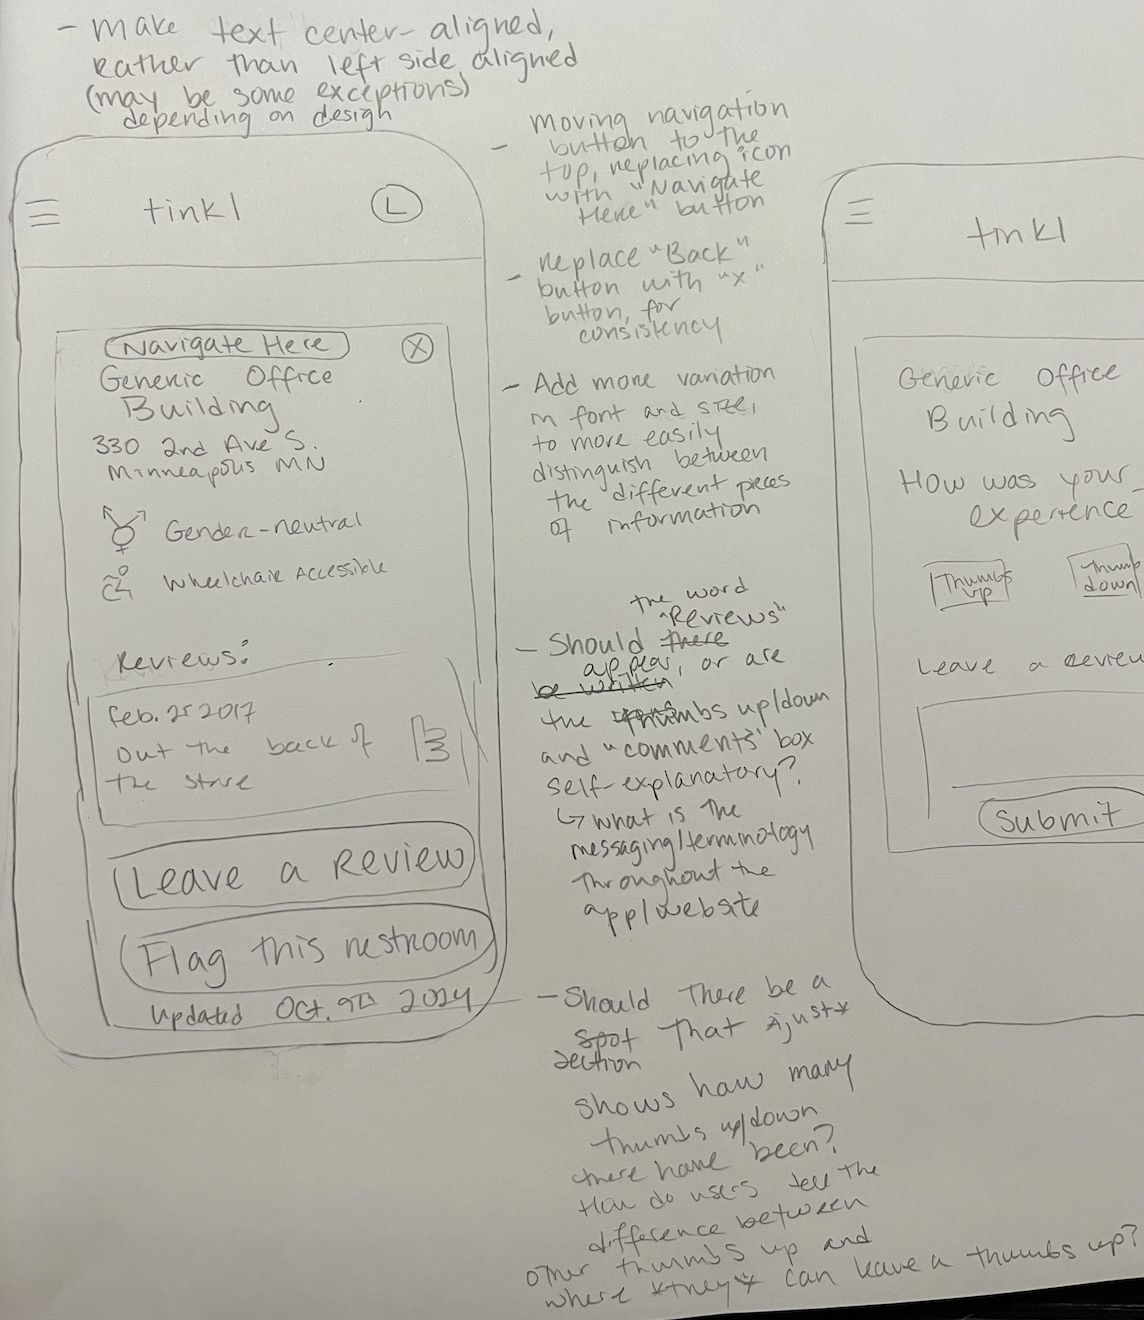 - make text center-aligned,
rather than left side aligned
(may be some exceptions)
depending on design
tinkl
L
Navigate Here
X
Generic Office
Building
330 2nd Ave S.
Minneapolis MN
Gender-neutral
Wheelchair Accessible
Reviews:
Feb. 25 2017
Out the back of
the store
Leave a Review
Flag this restroom
Updated Oct. 9th 2024
- moving navigation
button to the
top, replacing icon
with "Navigate
Here" button
- replace "Back"
button with "x"
button, for
consistency
- Add more variation
in font and size,
to more easily
distinguish between
the different pieces
of information
the word
"Reviews"
- Should there
appear, or are
be written
the thumbs up/down
and "comments" box
self-explanatory?
↳ what is the
messaging/terminology
throughout the
app/website
- Should there be a
spot that *just*
section
shows how many
thumbs up/down
there have been?
How do users tell the
difference between
other thumbs up and
where *they* can leave a thumbs up?
tinkl
Generic Office
Building
How was your
experience
Thumbs
up
Thumb
down
Leave a Review
Submit